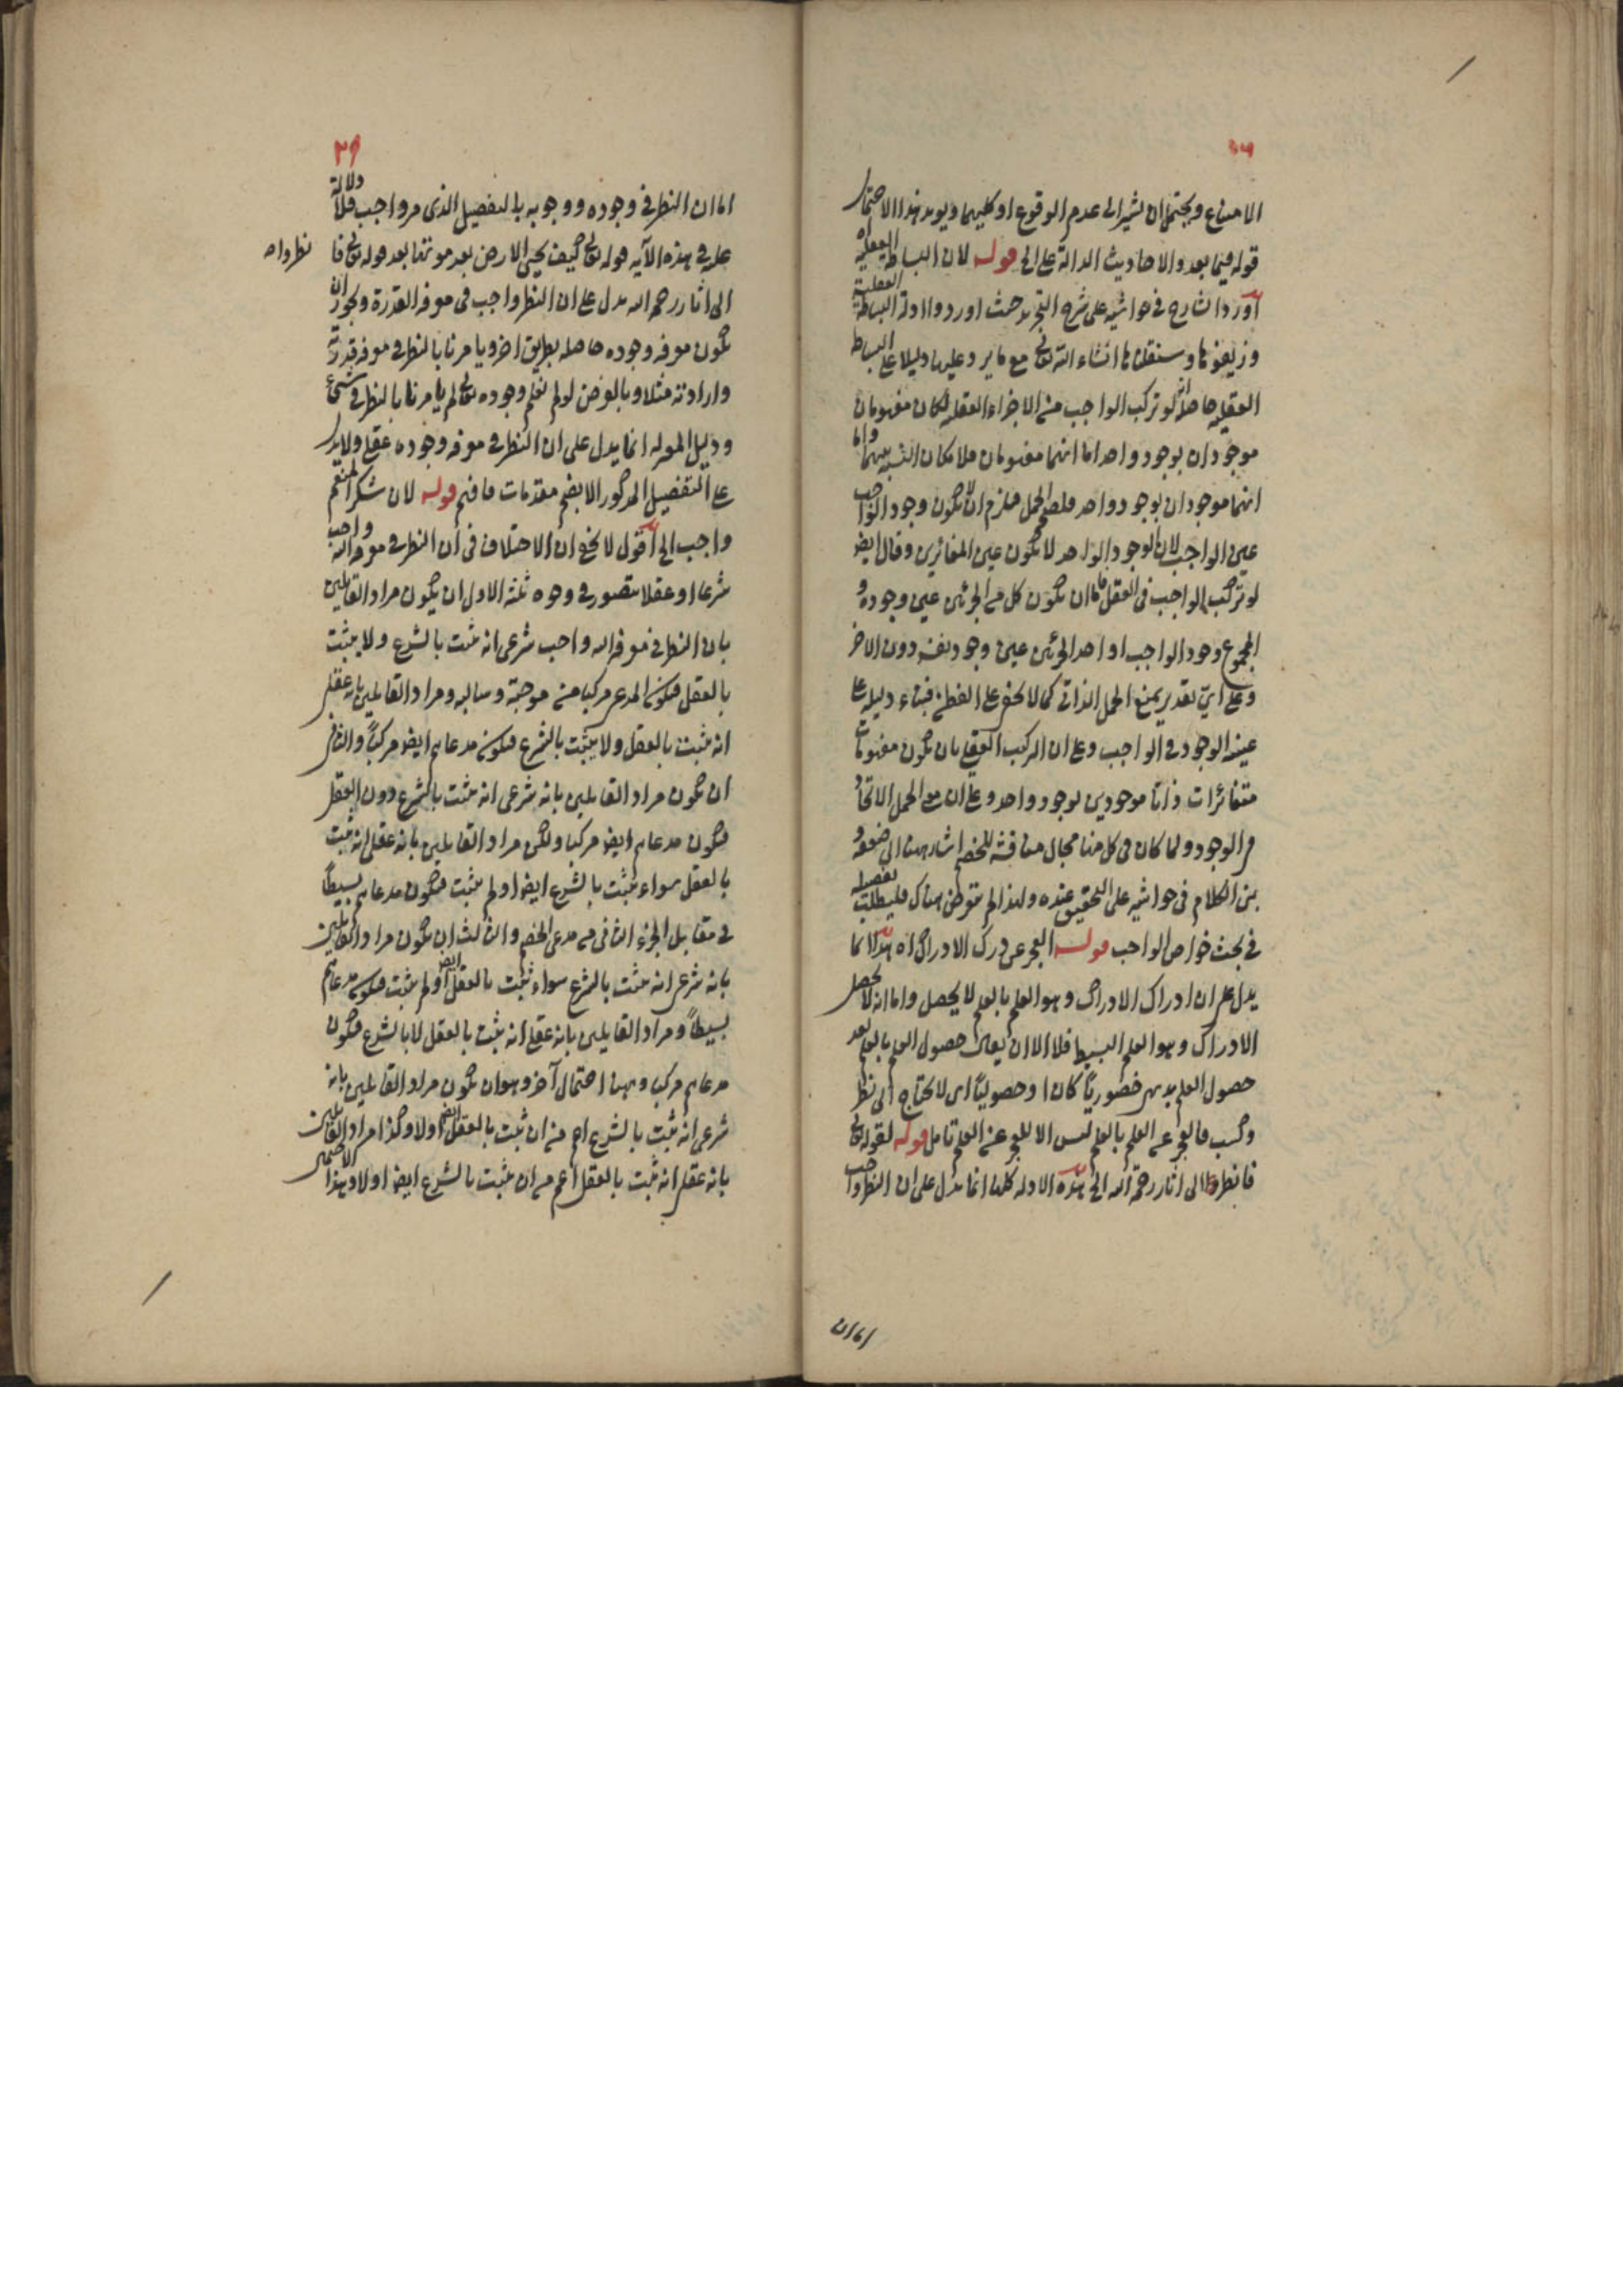 الامتناع ويحتمل ان يشير الى عدم الوقوع او كليهما ويويد هذا الاحتمال
قوله فيما بعد والاحاديث الدالة على الى قوله لان البساطة العقلية اه
اورد الشارح في حواشيه على شرح التجريد حيث اوردوا ادلة البساطة العقلية
وزيفوها وسننقلها انشاء الله تعالى مع ما يرد عليها دليلا على البساطة
العقلية حاصله انه لو تركب الواجب من الاجزاء العقلية لكان مفهومان
موجودان بوجود واحد اما انهما مفهومان فلامكان النسبة بينهما واما
انهما موجودان بوجود واحد فلصحة الحمل فيلزم ان لا يكون وجود الواجب
عين الواجب لان الوجود الواحد لا يكون عين المتغائرين وقال ايضا
لو تركب الواجب في العقل فاما ان يكون كل من الجزئين عين وجوده و
المجموع وجود الواجب او احد الجزئين عين وجود نفسه دون الاخر
وعلى اي تقدير يمنع الحمل الذاتي كما لا يخفى على الفطن فبناء دليله على
عينية الوجود في الواجب وعلى ان التركب العقلي بان يكون مفهومات
متغائرات ذاتا موجودين بوجود واحد وعلى ان معنى الحمل الاتحاد
في الوجود ولما كان في كل منها مجال مناقشة للخصم اشار ههنا الى ضعفه و
بنى الكلام في حواشيه على التحقيق عنده ولهذا لم يتعرض هناك فليطلب تفصيله
في بحث خواص الواجب قوله العجز عن درك الادراك اه هذا انما
يدل على ان ادراك الادراك وهو العلم بالعلم لا يحصل واما انه لا يحصل
الادراك وهو العلم البسيط فلا الا ان يقال حصول العلم بالعلم بعد
حصول العلم بديهي حضوريا كان او حصوليا اى لا يحتاج الى نظر
وكسب فالعجز عن العلم بالعلم ليس الا للعجز عن العلم تامل قوله لقوله تعالى
فانظروا الى اثار رحمة الله الخ هذه الادلة كلها انما تدل على ان النظر واجب
اما ان
٢٩
اما ان النظر في وجوده ووجوبه بالتفصيل الذي مر واجب فلا دلالة
عليه في هذه الآية قوله تعالى كيف يحيي الارض بعد موتها بعد قوله تعالى فا
نظروا اه
الى اثار رحمة الله يدل على ان النظر واجب في معرفة القدرة ويجوز ان
يكون معرفة وجوده حاصلة بطريق اخر ويامرنا بالنظر في معرفة قدرته
وارادته مثلا وبالفرض لو لم نعلم وجوده تعالى لم يامرنا بالنظر في شيء
ودليل المعتزلة انما يدل على ان النظر في معرفة وجوده عقلي ولا يدل
على التفصيل المذكور الا بضم مقدمات فافهم قوله لان شكر المنعم
واجب الخ اقول لا يخفى ان الاختلاف في ان النظر في معرفة الله واجب
شرعا او عقلا يتصور في وجوه ثلثة الاول ان يكون مراد القايلين
بان النظر في معرفة الله واجب شرعى انه يثبت بالشرع ولا يثبت
بالعقل فيكون المدعى مركبا من موجبة وسالبة ومراد القايلين بانه عقلي
انه يثبت بالعقل ولا يثبت بالشرع فيكون مدعاهم ايضا مركبا والثاني
ان يكون مراد القايلين بانه شرعى انه يثبت بالشرع دون العقل
فيكون مدعاهم ايضا مركبا ولكن مراد القايلين بانه عقلي انه يثبت
بالعقل سواء يثبت بالشرع ايضا او لم يثبت فيكون مدعاهم بسيطا
في مقابل الجزء الثاني من مدعى الخصم والثالث ان يكون مراد القايلين
بانه شرعى انه يثبت بالشرع سواء يثبت بالعقل ايضا او لم يثبت فيكون مدعاهم
بسيطا ومراد القايلين بانه عقلي انه يثبت بالعقل لا بالشرع فيكون
مدعاهم مركبا وههنا احتمال آخر وهو ان يكون مراد القايلين بانه
شرعى انه يثبت بالشرع اعم من ان يثبت بالعقل ايضا اولا وكذا مراد القايلين
بانه عقلي انه يثبت بالعقل اعم من ان يثبت بالشرع ايضا اولا وهذا الاحتمال